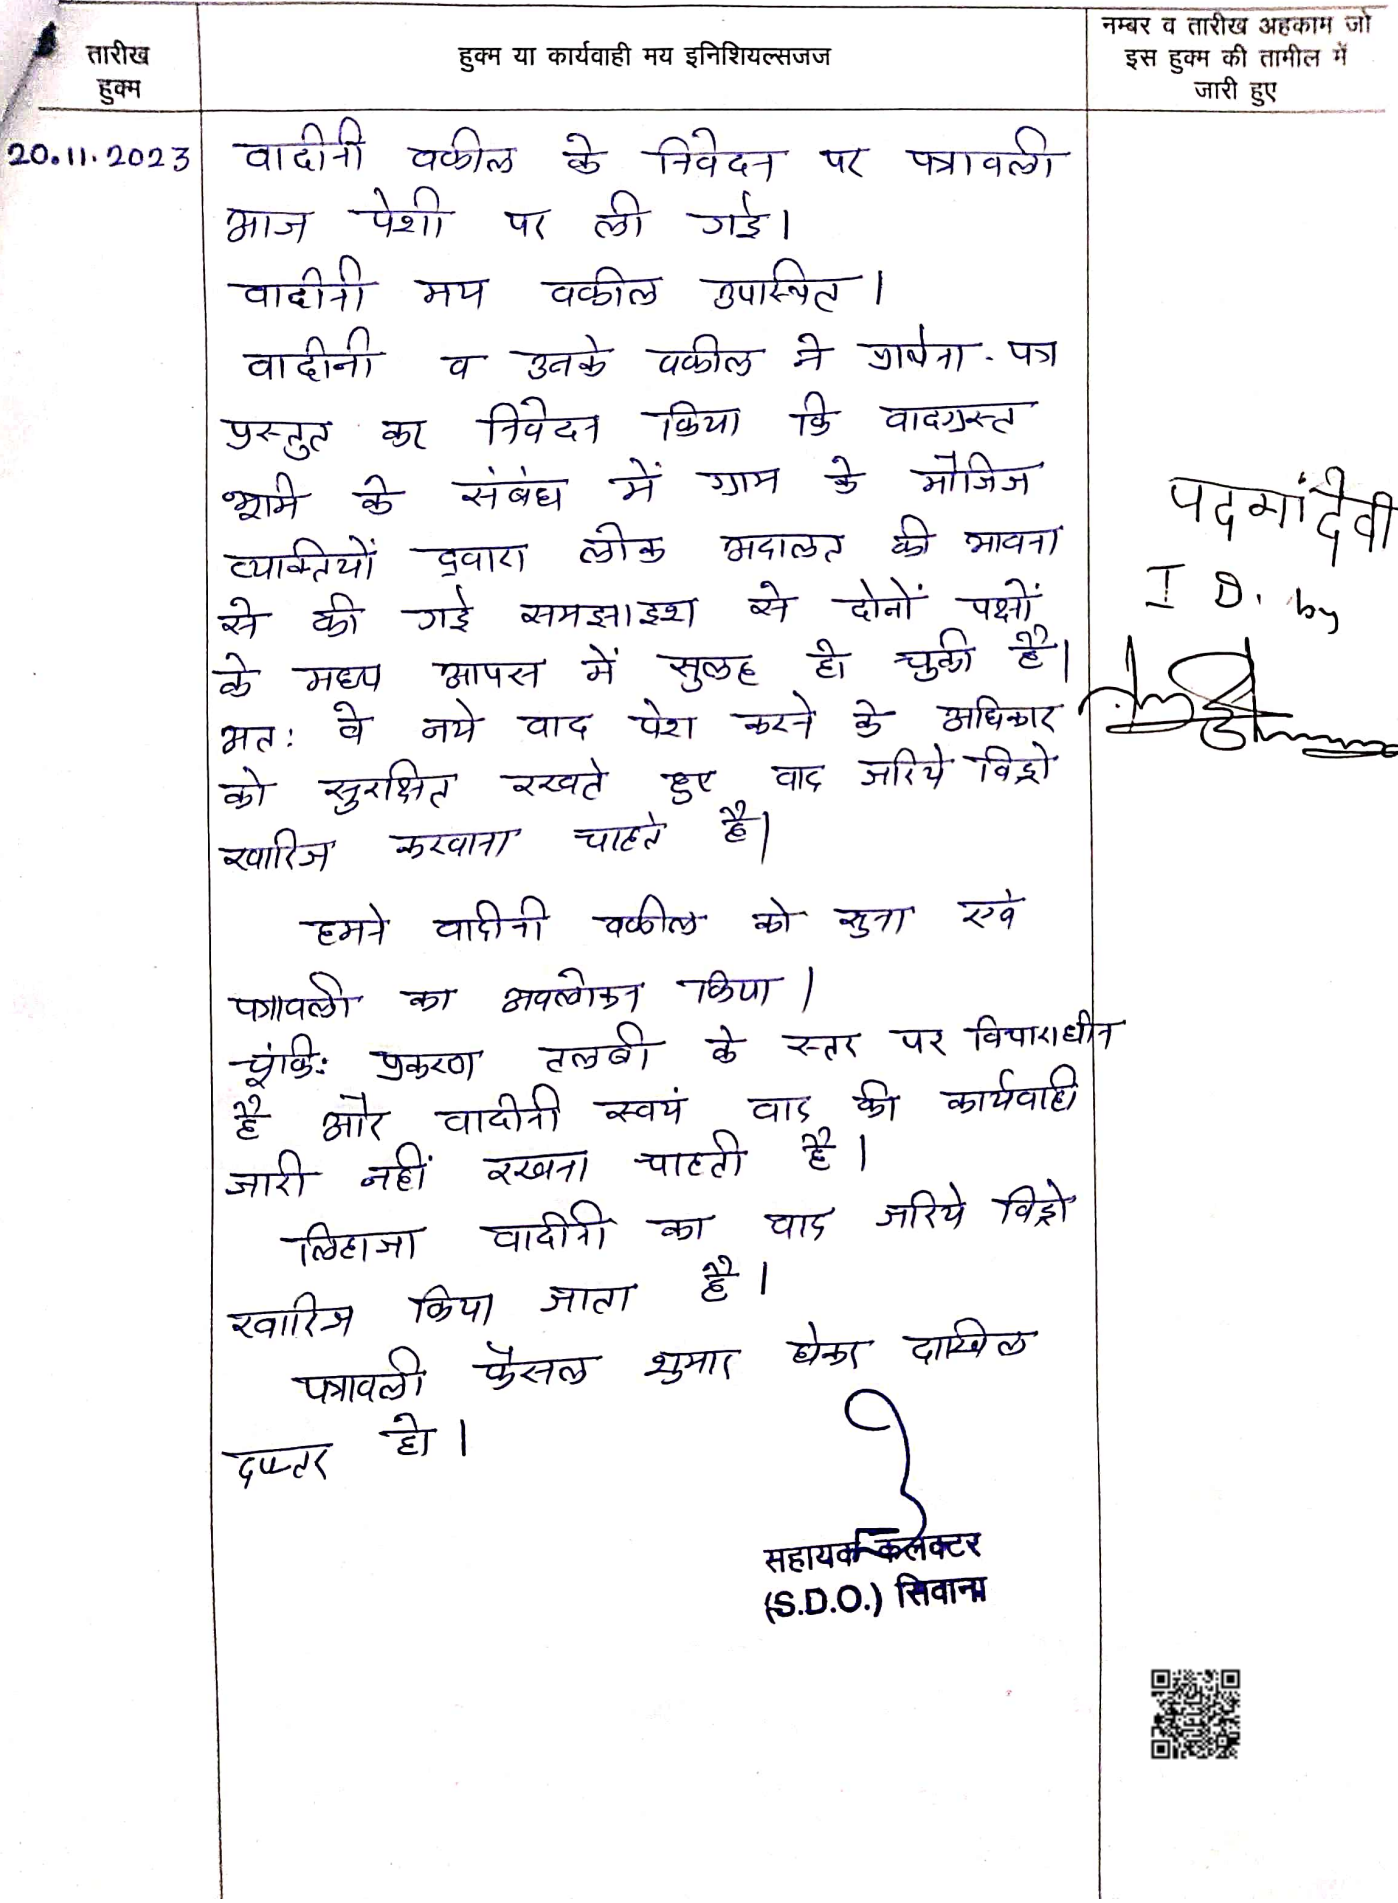 तारीख
हुक्म
हुक्म या कार्यवाही मय इनिशियल्सजज
नम्बर व तारीख अहकाम जो
इस हुक्म की तामील में
जारी हुए
20.11.2023
वादीनी वकील के निवेदन पर पत्रावली
आज पेशी पर ली गई।
वादीनी मय वकील उपस्थित।
वादीनी व उनके वकील ने प्रार्थना-पत्र
प्रस्तुत कर निवेदन किया कि वादग्रस्त
भूमि के संबंध में ग्राम के मौजिज
व्यक्तियों द्वारा लोक अदालत की भावना
से की गई समझाइश से दोनों पक्षों
के मध्य आपस में सुलह हो चुकी है।
अत: वे नये वाद पेश करने के अधिकार
को सुरक्षित रखते हुए वाद जरिये विड्रो
खारिज करवाना चाहते है।
हमने वादीनी वकील को सुना एवं
पत्रावली का अवलोकन किया।
चूंकि: प्रकरण तलबी के स्तर पर विचाराधीन
है और वादीनी स्वयं वाद की कार्यवाही
जारी नहीं रखना चाहती है।
लिहाजा वादीनी का वाद जरिये विड्रो
खारिज किया जाता है।
पत्रावली फैसल शुमार होकर दाखिल
दफ्तर हो।
पदमांदेवी
I D. by
सहायक कलेक्टर
(S.D.O.) सिवाना